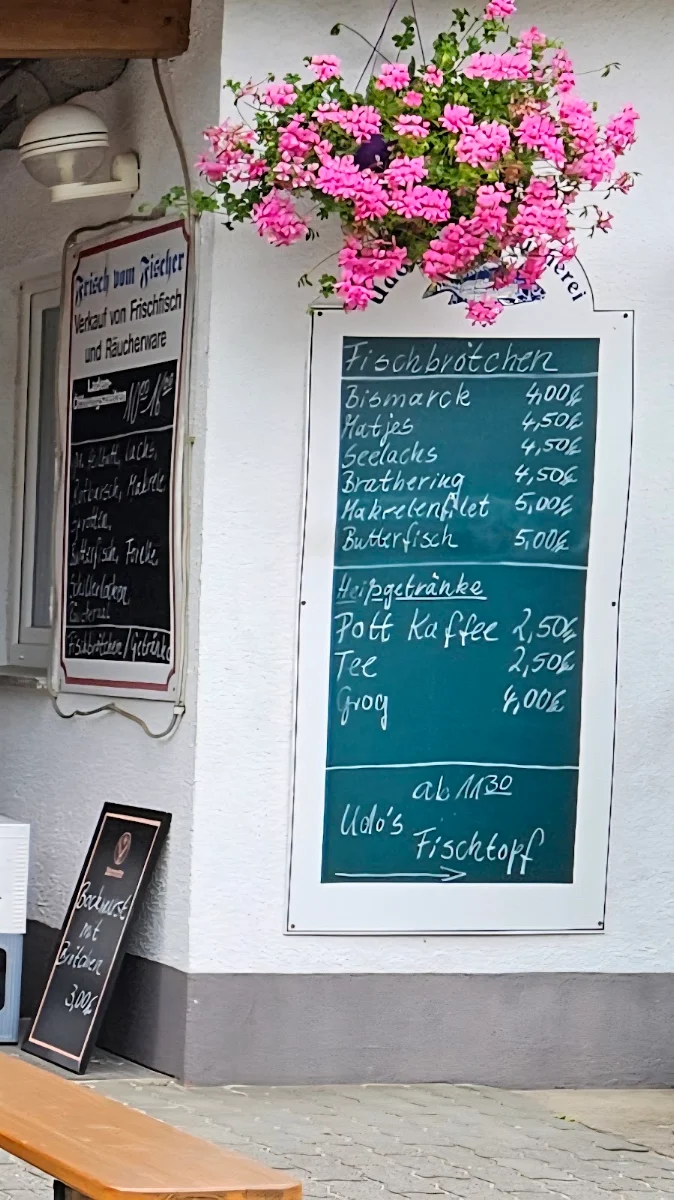 Frisch vom Fischer
Verkauf von Frischfisch
und Räucherware
Laden-
Öffnungszeiten 1100 - 1600
Heilbutt, Lachs,
Rotbarsch, Makrele
Sprotten,
Butterfisch, Forelle,
Schillerlocken,
Fischbrötchen/Getränke
Fischbrötchen
Bismarck 4,00€
Matjes 4,50€
Seelachs 4,50€
Brathering 4,50€
Makrelenfilet 5,00€
Butterfisch 5,00€
Heißgetränke
Pott Kaffee 2,50€
Tee 2,50€
Grog 4,00€
ab 11 30
Udo's
Fischtopf
Bockwurst
mit
Brötchen
3,00€